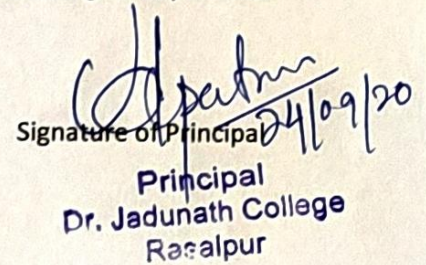 24/09/20
Signature of Principal
Principal
Dr. Jadunath College
Rasalpur